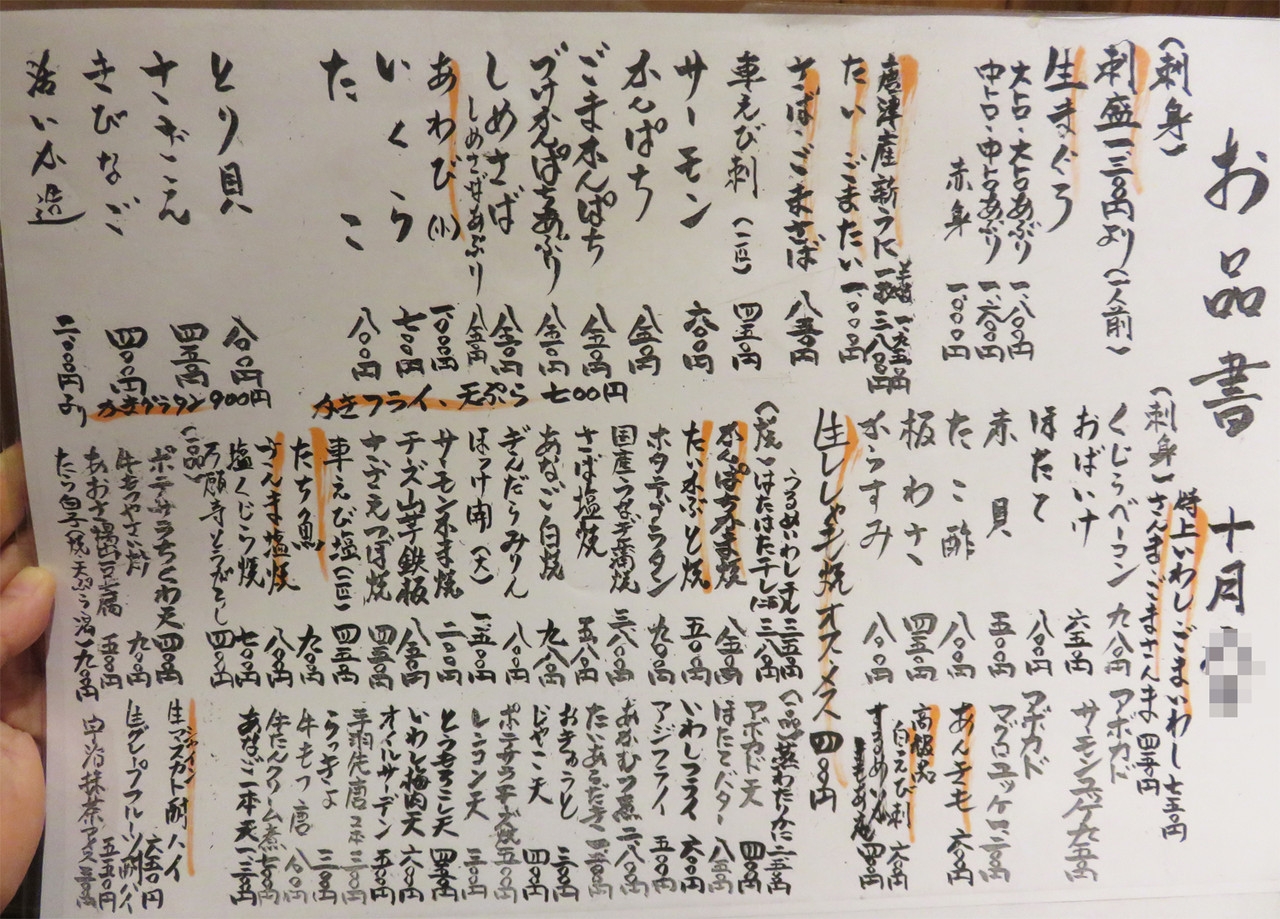 お品書 十月
(刺身)
刺盛一三〇〇円より(一人前)
生まぐろ
大トロ・大トロあぶり 一、八〇〇円
中トロ・中トロあぶり 一、六〇〇円
赤身 一、〇〇〇円
唐津産新うに
たい ごまたい 一、〇〇〇円
さば・ごまさば 八五〇円
車えび刺(一匹) 四五〇円
サーモン 六〇〇円
かんぱち 八〇〇円
ごまかんぱち 八五〇円
づけかんぱちあぶり 八五〇円
しめさば 八五〇円
しめさばあぶり 八五〇円
あわび(小) 一、〇〇〇円
いくら 七〇〇円
たこ 八〇〇円
とり貝 八〇〇円
さざえ 四五〇円
きびなご 四〇〇円
活いか造 二、〇〇〇円より
かきフライ、天ぷら 七〇〇円
かきグラタン 900円
(刺身)
特上いわし ごまいわし 七五〇円
さんま・ごまさんま 四五〇円
くじらベーコン 九八〇円
おばいけ 六五〇円
ほたて 八〇〇円
赤貝 五〇〇円
たこ酢 八〇〇円
板わさ 四五〇円
からすみ 八〇〇円
生ししゃも焼 オス メス 四〇〇円
(焼)
うるめいわし
はたはた干し
かんぱちかま焼 八五〇円
たいかぶと焼 五〇〇円
ホタテグラタン 九〇〇円
国産うなぎ蒲焼 三、八〇〇円
さば塩焼 五八〇円
あなご白焼 九八〇円
ぎんだらみりん 八〇〇円
ほっけ開(大) 一、五〇〇円
サーモンかま焼
チーズ山芋鉄板 八五〇円
さざえつぼ焼 四五〇円
車えび塩(一匹) 四五〇円
たちうお魚 九〇〇円
さんま塩焼 八〇〇円
塩くじら焼 七〇〇円
(一品)
万願寺とうがらし 四〇〇円
ポテサラちくわ天 四〇〇円
牛もつやさい炒 九〇〇円
あおさ揚出豆腐 五五〇円
たら白子(焼、天ぷら、)九〇〇円
アボカド
サーモンユッケ 九五〇円
アボカド
マグロユッケ
あんキモ 六〇〇円
高級魚
白えび刺 六〇〇円
(一品)
アボカド天 四〇〇円
ほたてバター 八五〇円
アジフライ 五〇〇円
いわしフライ 六〇〇円
あかむつ煮
たいあらだき
おきゅうと 三五〇円
じゃこ天 四〇〇円
ポテサラチーズ焼 五〇〇円
レンコン天
とうもろこし天 四五〇円
いわし梅肉天 六〇〇円
オイルサーデン 五〇〇円
手羽先唐
らっきょ 三〇〇円
牛もつ唐 八〇〇円
牛たんクリーム煮
あなご一本天
生シャインマスカット酎ハイ 六五〇円
生グレープフルーツ酎ハイ 五五〇円
宇治抹茶アイス